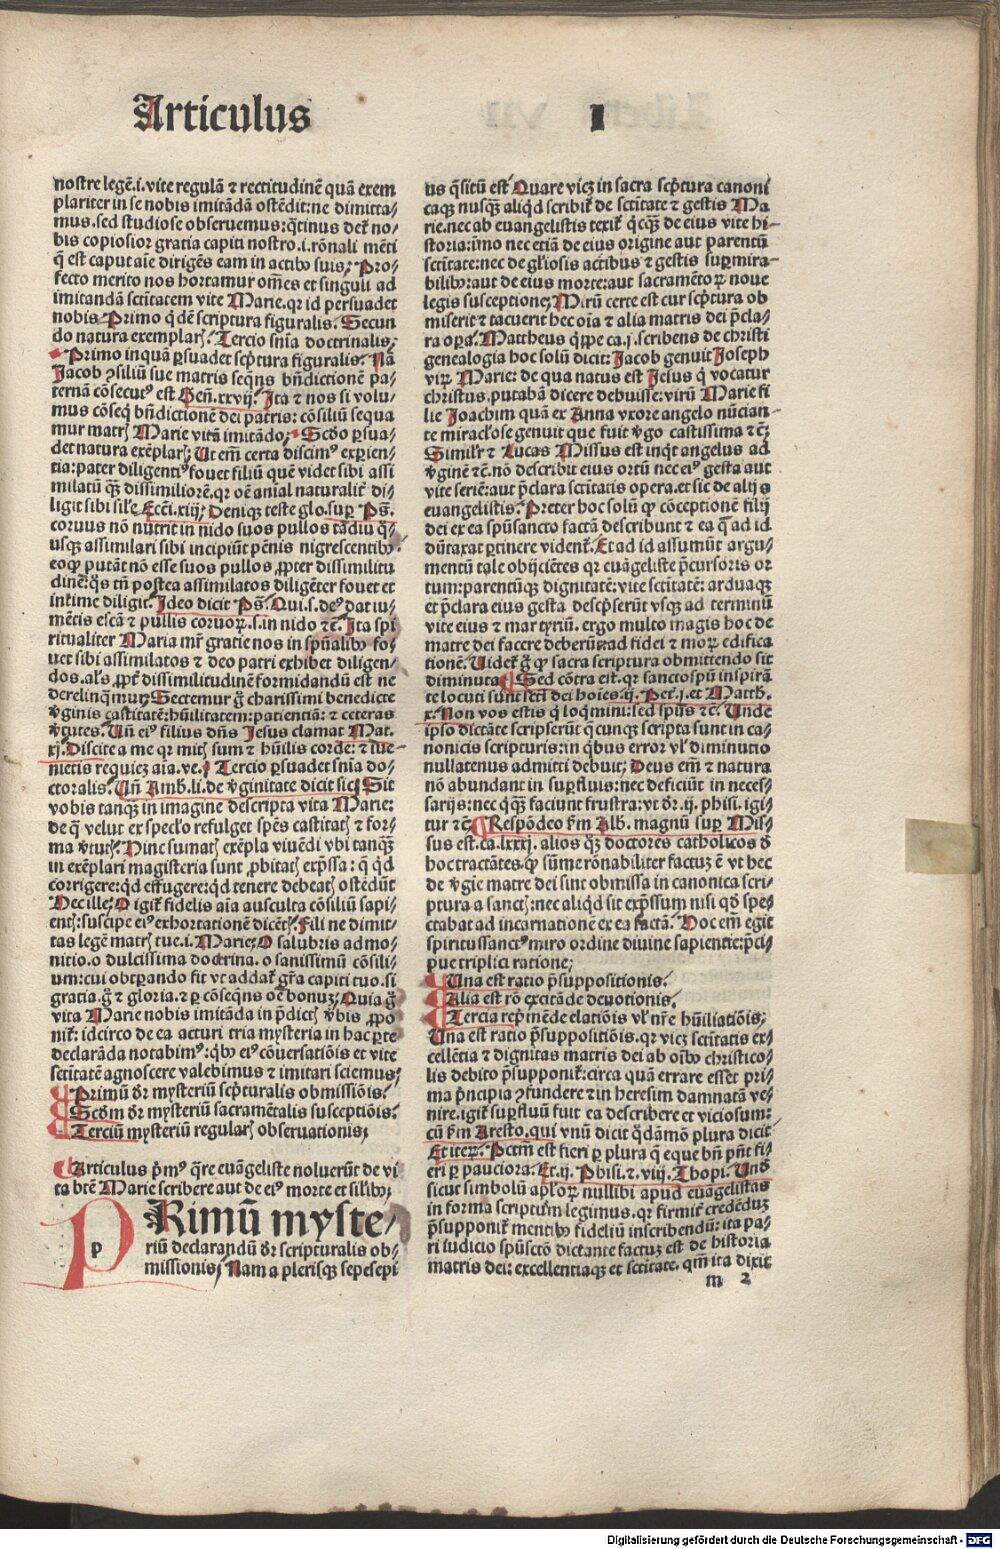 Articulus I
nostre legē.i.vite regulā ⁊ rectitudinē quā exem
plariter in se nobis imitādā ostēdit:ne dimitta/
mus.sed studiose obseruemus:q̄tinus det̄ no/
bis copiosior gratia capiti nostro.i.rōnali mēti
q̄ est caput aīe dirigēs eam in actibꝰ suis; Pro/
fecto merito nos hortamur om̄es et singuli ad
imitandā sctītatem vite Marie.qr id persuadet
nobis Primo q̇dē scriptura figuralis. Secun
do natura exemplarꝭ. Tercio sn̄ia doctrinalis;
Primo inquā ꝑsuadet scp̄tura figuralis. Nā
Jacob ꝯsiliū sue matris seqn̄s bn̄dictionē pa/
ternā cōsecutꝰ est Gen̄.xxvij. Ita ⁊ nos si volu/
mus cōseq̇ bn̄dictionē dei patris: cōsiliū sequa
mur matrꝭ Marie vitā imitādo; Scd̄o ꝑsua/
det natura exēplarꝭ; Ut em̄ certa discimꝰ experien/
tia:pater diligentiꝰ fouet filiū quē videt sibi assi
milatū qꝫ dissimiliorē.qr oē anial naturalit̄ di/
ligit sibi sil̄e Ecc̄i.xiij; Denique teste glo.sup Ps̄.
coruus nō nutrit in nido suos pullos tādiu q̇/
usqꝫ assimilari sibi incipiūt pēnis nigrescentibꝰ
eoqꝫ putāt nō esse suos pullos ꝓpter dissimilitu
dinē:q̇s tn̄ postea assimilatos diligēter fouet et
intime diligit. Ideo dicit Ps̄. Qui.s.deꝰ dat iu/
mētis escā ⁊ pullis coruoꝝ.s.in nido ⁊c̄. Ita spi
ritualiter Maria mr̄ gratie nos in sp̄ualibꝰ fo/
uet sibi assimilatos ⁊ deo patri exhibet diligen/
dos.al̄s ꝓpt̄ dissimilitudinē formidandū est ne
derelinq̄mur; Sectemur g̊ charissimi benedicte
v̄ginis castitatē:hūilitatem:patientiā: ⁊ ceteras
v̄tutes. Un̄ eiꝰ filius dn̄s Jesus clamat Mat.
xj. Discite a me qr mitꝭ sum ⁊ hūilis corde: ⁊ iue-
nietis requiez aīa.ve.; Tercio ꝑsuadet sn̄ia do/
ctoralis. Un̄ Amb.li.de v̄ginitate dicit sic; Sit
vobis tanqꝫ in imagine descripta vita Marie:
de q̄ velut ex speclo refulget spēs castitatꝭ ⁊ for/
ma v̄tutꝭ. Hinc sumatꝭ exēpla viuēdi vbi tanqꝫ
in exēplari magisteria sunt ꝓbitatꝭ exp̄ssa: q̇ qd
corrigere:qd effugere:qd tenere debeatꝭ ostēdūt
Hec ille; O igit̄ fidelis aīa ausculta cōsiliū sapi/
entꝭ:suscipe eiꝰ exhortationē dicētꝭ. Fili ne dimit/
tas legē matrꝭ tue.i. Marie; O salubris admo/
nitio.o dulcissima doctrina.o sanissimū cōsili/
um:cui obtꝑando fit vt addat̄ gr̄a capiti tuo.si
gratia.g̊ ⁊ gloria.⁊ ꝑ cōseqn̄s oē bonuꝫ; Quia g̊
vita Marie nobis imitāda in p̄dictꝭ v̄bis ꝓpo
nit̄: idcirco de ea acturi tria mysteria in hac ꝑte
declarāda notabimꝰ:q̇bꝰ eiꝰ cōuersatiōis et vite
sctītatē agnoscere valebimus ⁊ imitari sciemus;
Primū dr̄ mysteriū scp̄turalis obmissiōis.
Scd̄m dr̄ mysteriū sacramētalis susceptiōis.
Terciū mysteriū regularꝭ obseruationis;
Articulus p̄mꝰ q̄re euāgeliste noluerūt de vi
ta btē Marie scribere aut de eiꝰ morte et sil̄ibꝰ;
PRimū myste/
riū declarandū dr̄ scripturalis ob/
missionis; Nam a plerisqꝫ sepesepi
us q̄situ est Quare vicꝫ in sacra scp̄tura canoni
caqꝫ nusqꝫ aliqd scribit̄ de sctītate ⁊ gestis Ma
rie.nec ab euangelistis texit̄ q̇cqꝫ de eius vite hi-
storia:imo nec etiā de eius origine aut parentū
sctītate:nec de gl̄iosis actibus ⁊ gestis sup̄mira-
bilibꝰ:aut de eius morte:aut sacramētoꝝ noue
legis susceptione; Mirū certe est cur scp̄tura ob
miserit ⁊ tacuerit hec oīa ⁊ alia matris dei p̄cla/
ra oꝑa. Mattheus q̇ppe ca.j.scribens de christi
genealogia hoc solū dicit: Jacob genuit Joseph
viꝝ Marie: de qua natus est Jesus q̇ vocatur
christus.putabā dicere debuisse: virū Marie fi
lie Joachim quā ex Anna vxore angelo nūcian-
te miraclose genuit que fuit v̄go castissima ⁊c̄;
Simil̄r ⁊ Lucas Missus est inqt angelus ad
v̄ginē ⁊c̄.nō describit eius ortū nec eiꝰ gesta aut
vite seriē:aut p̄clara sctītatis opera.et sic de alijs
euangelistis. Preter hoc solū qꝫ cōceptionē filij
dei ex ea spūsancto factā describunt ⁊ ea q̄ ad id
dūtaxat ꝑtinere videnꝉ. Et ad id assumūt argu/
mentū tale obijciētes qr euāgeliste p̄cursoris or
tum:parentūqꝫ dignitatē:vite sctītatē: arduaqꝫ
et p̄clara eius gesta descp̄serūt vsqꝫ ad terminū
vite eius ⁊ martyriū. ergo multo magis hoc de
matre dei facere deberūt ad fidei ⁊ moꝝ edifica
tionē. Uidet̄ g̊ qꝫ sacra scriptura obmittendo sit
diminuta Sed cōtra est.qr sanctospū inspirā
te locuti sunt sctī dei hoīes.ij. Pet̄.j.et Matth.
x. Non vos estis q̇ loq̇mini:sed spūs ⁊c̄. Unde
ipso dictāte scripserūt q̇cunqꝫ scripta sunt in ca/
nonicis scripturis:in q̇bus error vl̄ diminutio
nullatenus admitti debuit; Deus em̄ ⁊ natura
nō abundant in suꝑfluis:nec deficiūt in neces/
sarijs:nec q̇cqꝫ faciunt frustra:vt dr̄.ij. phisi. igi/
tur ⁊c̄ Respōdeo ẜm Alb. magnū sup Mis/
sus est.ca.lxxxj. alios qꝫ doctores catholicos ð
hoc tractātes.qꝫ sūme rōnabiliter factuꝫ ē vt hec
de v̄gie matre dei sint obmissa in canonica scri/
ptura a sanctꝭ:nec aliqd sit exp̄ssum nisi qd spe/
ctabat ad incarnationē ex ea factā. Hoc em̄ egit
spiritussanctꝰ miro ordine diuine sapientie:p̄ci/
pue triplici ratione;
Una est ratio p̄suppositionis.
Alia est rō excitāde deuotionis.
Tercia rep̄inēde elatiōis vl̄ nr̄e hūiliatiōis;
Una est ratio p̄suppositiōis.qr vicꝫ sctītatis ex/
cellētia ⁊ dignitas matris dei ab oībꝰ christico/
lis debito p̄supponit̄:circa quā errare esset pri/
ma p̄ncipia ꝯfundere ⁊ in heresim damnatā ve/
nire.igit̄ suꝑfluū fuit ea describere et viciosum:
cū ẜm Aresto.qui vnū dicit q̇dāmō plura dicit
Et iteꝝ. Pctm̄ est fieri ꝑ plura q̄ eque bn̄ pn̄t fi/
eri ꝑ pauciora. Et.ij. Phisi.⁊.viij. Thopi. Und̄
sicut simbolū apl̄oꝝ nullibi apud euāgelistas
in forma scriptum legimus.qr firmit̄ credēduꝫ
p̄supponit̄ mentibꝰ fideliū inscribendū: ita pa/
ri iudicio spūsctō dictante factuꝫ est de historia
matris dei: excellentiaqꝫ et sctītate. qm̄ ita dixit
m 2
Digitalisierung gefördert durch die Deutsche Forschungsgemeinschaft - DFG